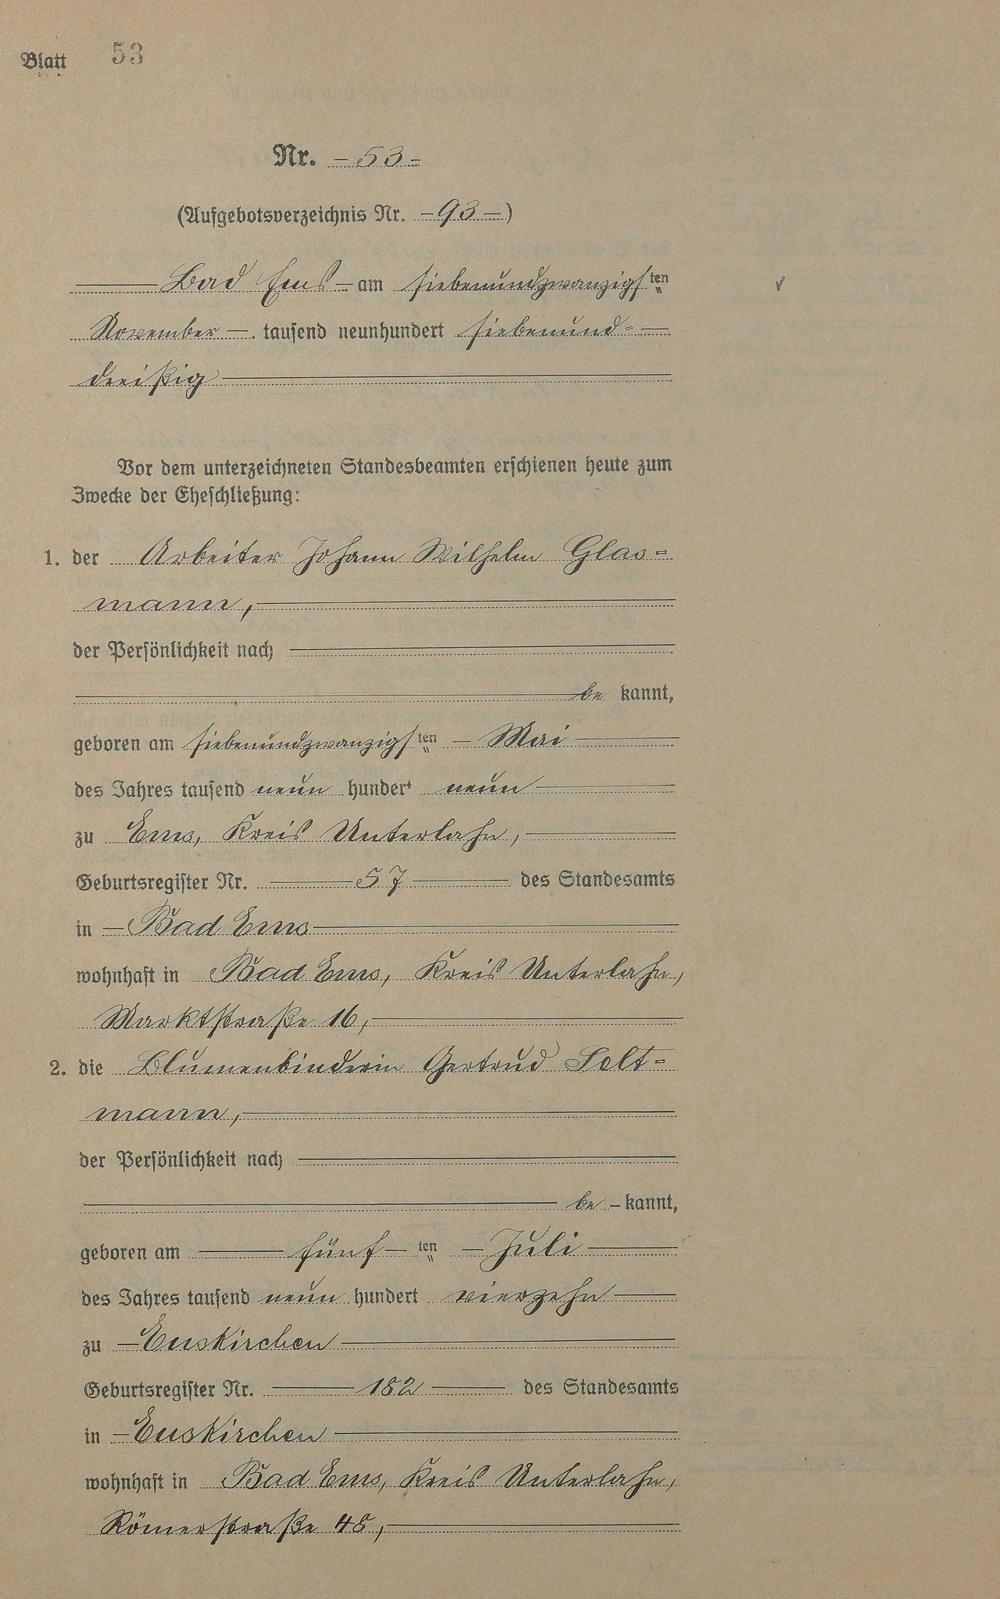 Blatt 53
Nr. - 53 -
(Aufgebotsverzeichnis Nr. - 93 - )
Bad Ems - am siebenundzwanzigsten
November - tausend neunhundert siebenund-
dreißig
Vor dem unterzeichneten Standesbeamten erschienen heute zum
Zwecke der Eheschließung:
1. der Arbeiter Johann Wilhelm Glas=
mann,
der Persönlichkeit nach
be kannt,
geboren am siebenundzwanzigsten - Mai
des Jahres tausend neun hundert neun
zu Ems, Kreis Unterlahn,
Geburtsregister Nr. 57 des Standesamts
in - Bad Ems
wohnhaft in Bad Ems, Kreis Unterlahn,
Marktstraße 16,
2. die Blumenbinderin Gertrud Selt=
mann,
der Persönlichkeit nach
be - kannt,
geboren am fünf - ten - Juli
des Jahres tausend neun hundert vierzehn
zu - Euskirchen
Geburtsregister Nr. 182 des Standesamts
in - Euskirchen
wohnhaft in Bad Ems, Kreis Unterlahn,
Römerstraße 48,